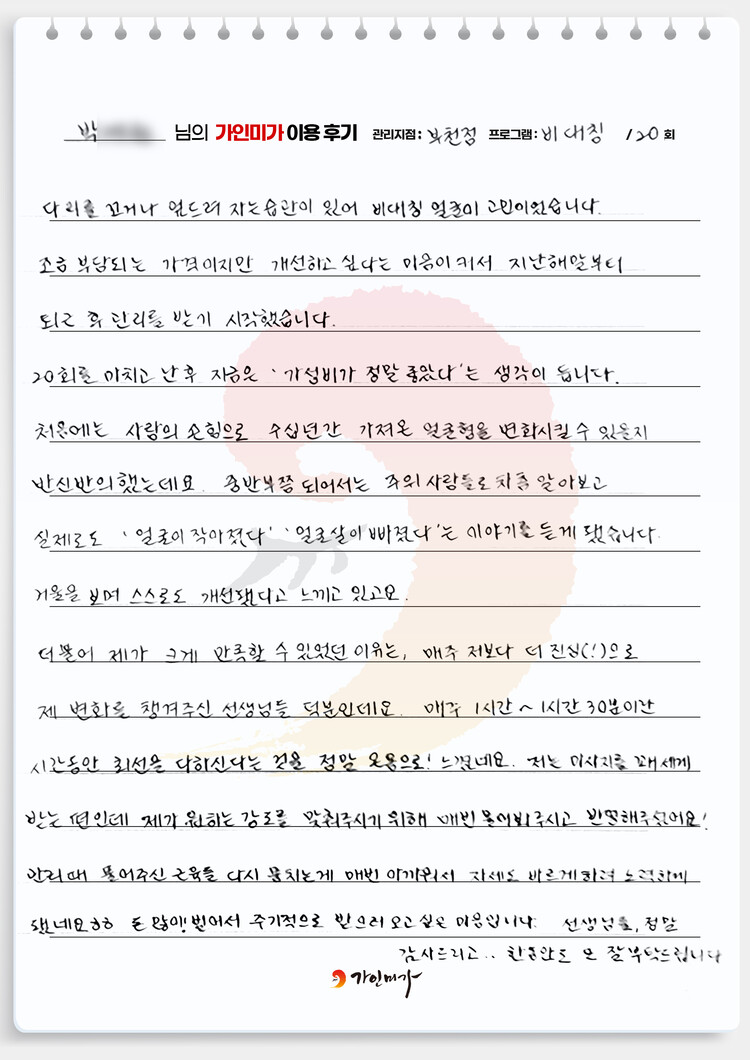 박 님의 가인미가 이용 후기 관리지점: 부천점 프로그램: 비대칭 /20 회
다리를 꼬거나 엎드려 자는습관이 있어 비대칭 얼굴이 고민이었습니다.
조금 부담되는 가격이지만 개선하고 싶다는 마음이 커서 지난해말부터
퇴근 후 관리를 받기 시작했습니다.
20회를 마치고 난 후 지금은 '가성비가 정말 좋았다'는 생각이 듭니다.
처음에는 사람의 손힘으로 수십년간 가져온 얼굴형을 변화시킬 수 있을지
반신반의했는데요. 중반부쯤 되어서는 주위 사람들도 차츰 알아보고
실제로도 '얼굴이 작아졌다' '얼굴살이 빠졌다'는 이야기를 듣게 됐습니다.
거울을 보며 스스로도 개선됐다고 느끼고 있고요.
더불어 제가 크게 만족할 수 있었던 이유는, 매주 저보다 더 진심(!)으로
제 변화를 챙겨주신 선생님들 덕분인데요. 매주 1시간~1시간 30분이란
시간동안 최선을 다하신다는 것을 정말 온몸으로! 느꼈네요. 저는 마사지를 꽤 세게
받는 편인데 제가 원하는 강도를 맞춰주시기 위해 매번 물어봐주시고 반영해주셨어요!
관리 때 풀어주신 근육들 다시 뭉치는게 매번 아까워서 자세도 바르게하려 노력하게
됐네요ㅎㅎ 돈 많이! 벌어서 주기적으로 받으러 오고싶은 마음입니다. 선생님들, 정말
감사드리고.. 한동안도 또 잘부탁드립니다
가인미가